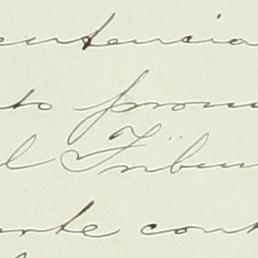 entencia
to pronu
l Tribun
arte cont